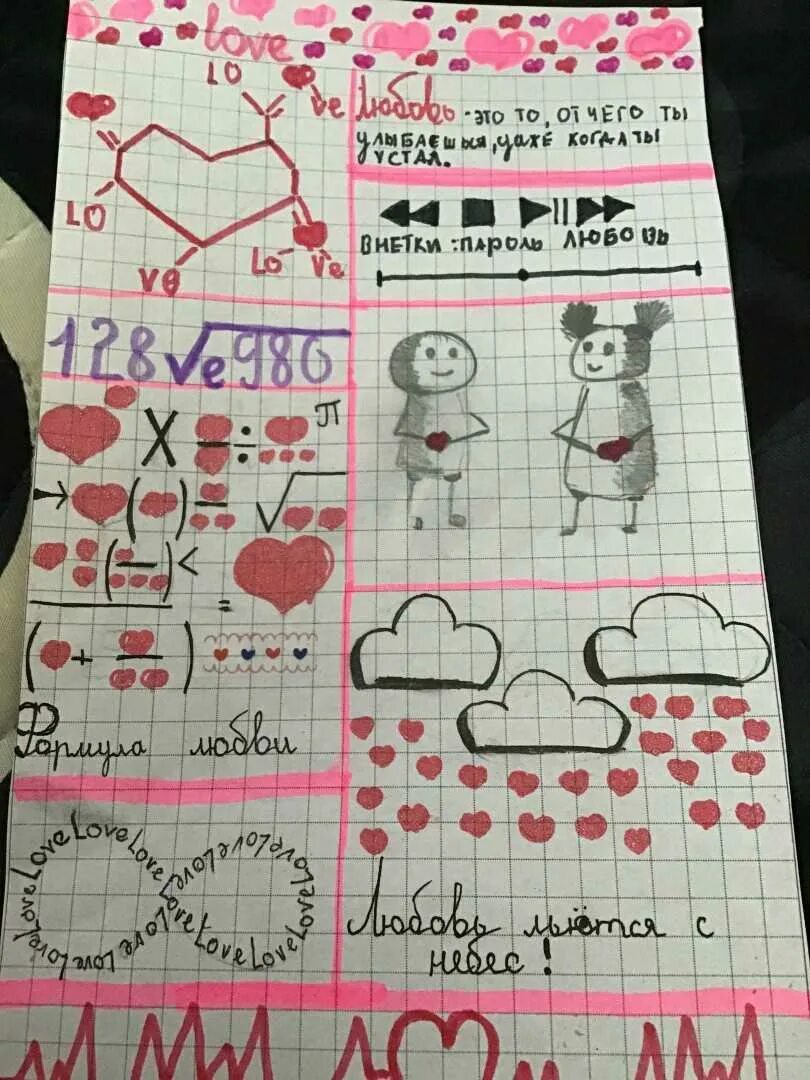 love
LO
ve
LO
Lo Ve
VO
Любовь - ЭТО ТО, ОТ ЧЕГО ТЫ
УЛЫБАЕШЬСЯ, ДАЖЕ КОГДА ТЫ
УСТАЛ.
ВНЕТКИ :ПАРОЛЬ ЛЮБОВЬ
128√e980
X ÷ П
( ) √
( ) <
=
( + )
Формула любви
Love Love Love Love Love Love Love Love Love Love Love Love Love Love
Любовь льётся с
небес !